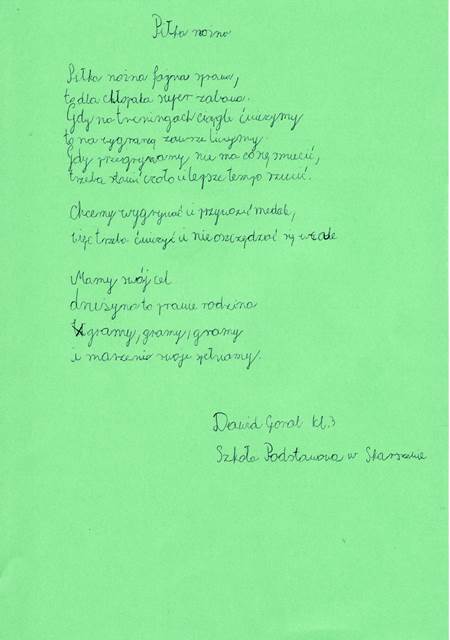 Piłka nożna
Piłka nożna fajna sprawa,
to dla chłopaka super zabawa.
Gdy na treningach ciągle ćwiczymy
to na wygraną zawsze liczymy.
Gdy przegrywamy nie ma co się smucić,
trzeba stawić czoło i lepsze tempo rzucić.
Chcemy wygrywać i przywozić medale,
więc trzeba ćwiczyć i nie oszczędzać się wcale
Mamy swój cel
drużyna to prawie rodzina
gramy, gramy, gramy
i marzenia swoje spełniamy.
Dawid Goral kl.3
Szkoła Podstawowa w